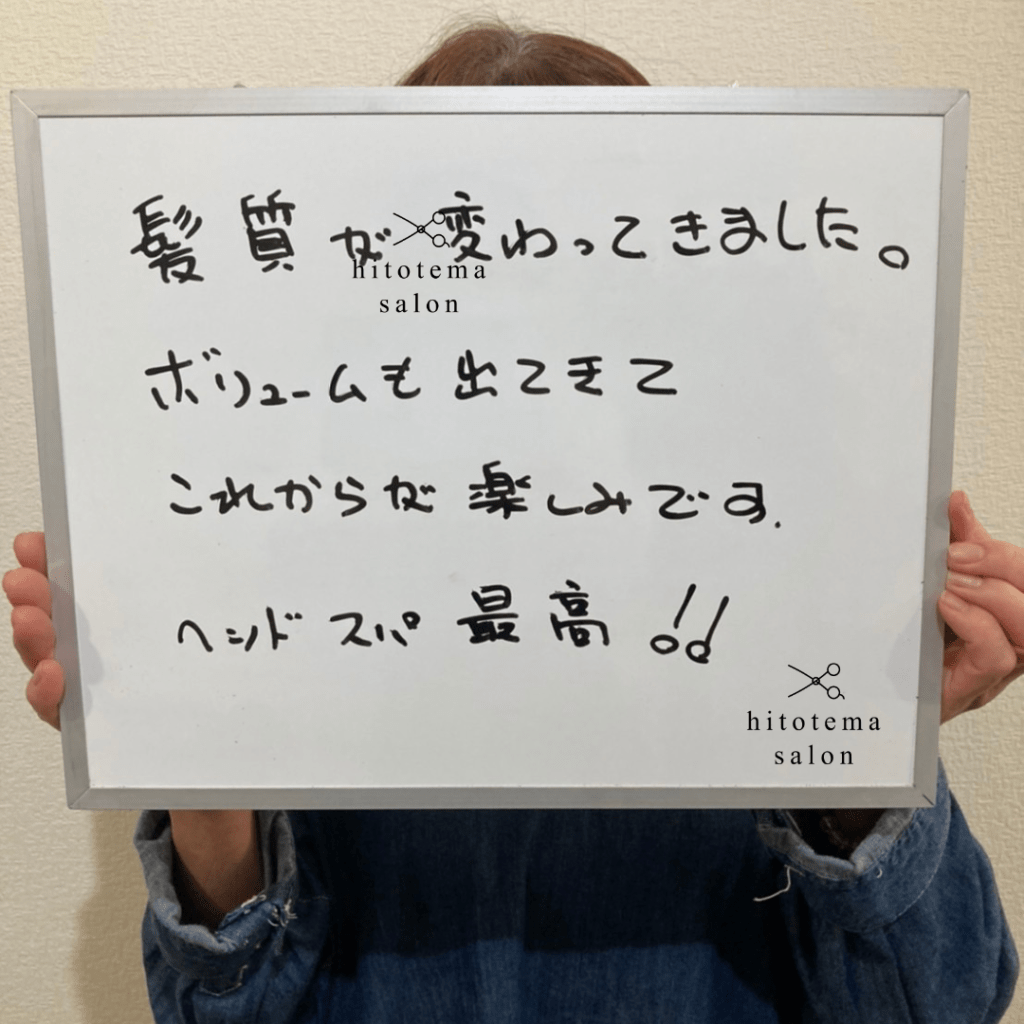 髪質が変わってきました。
hitotema
salon
ボリュームも出てきて
これからが楽しみです.
ヘンドスパ最高!!
hitotema
salon